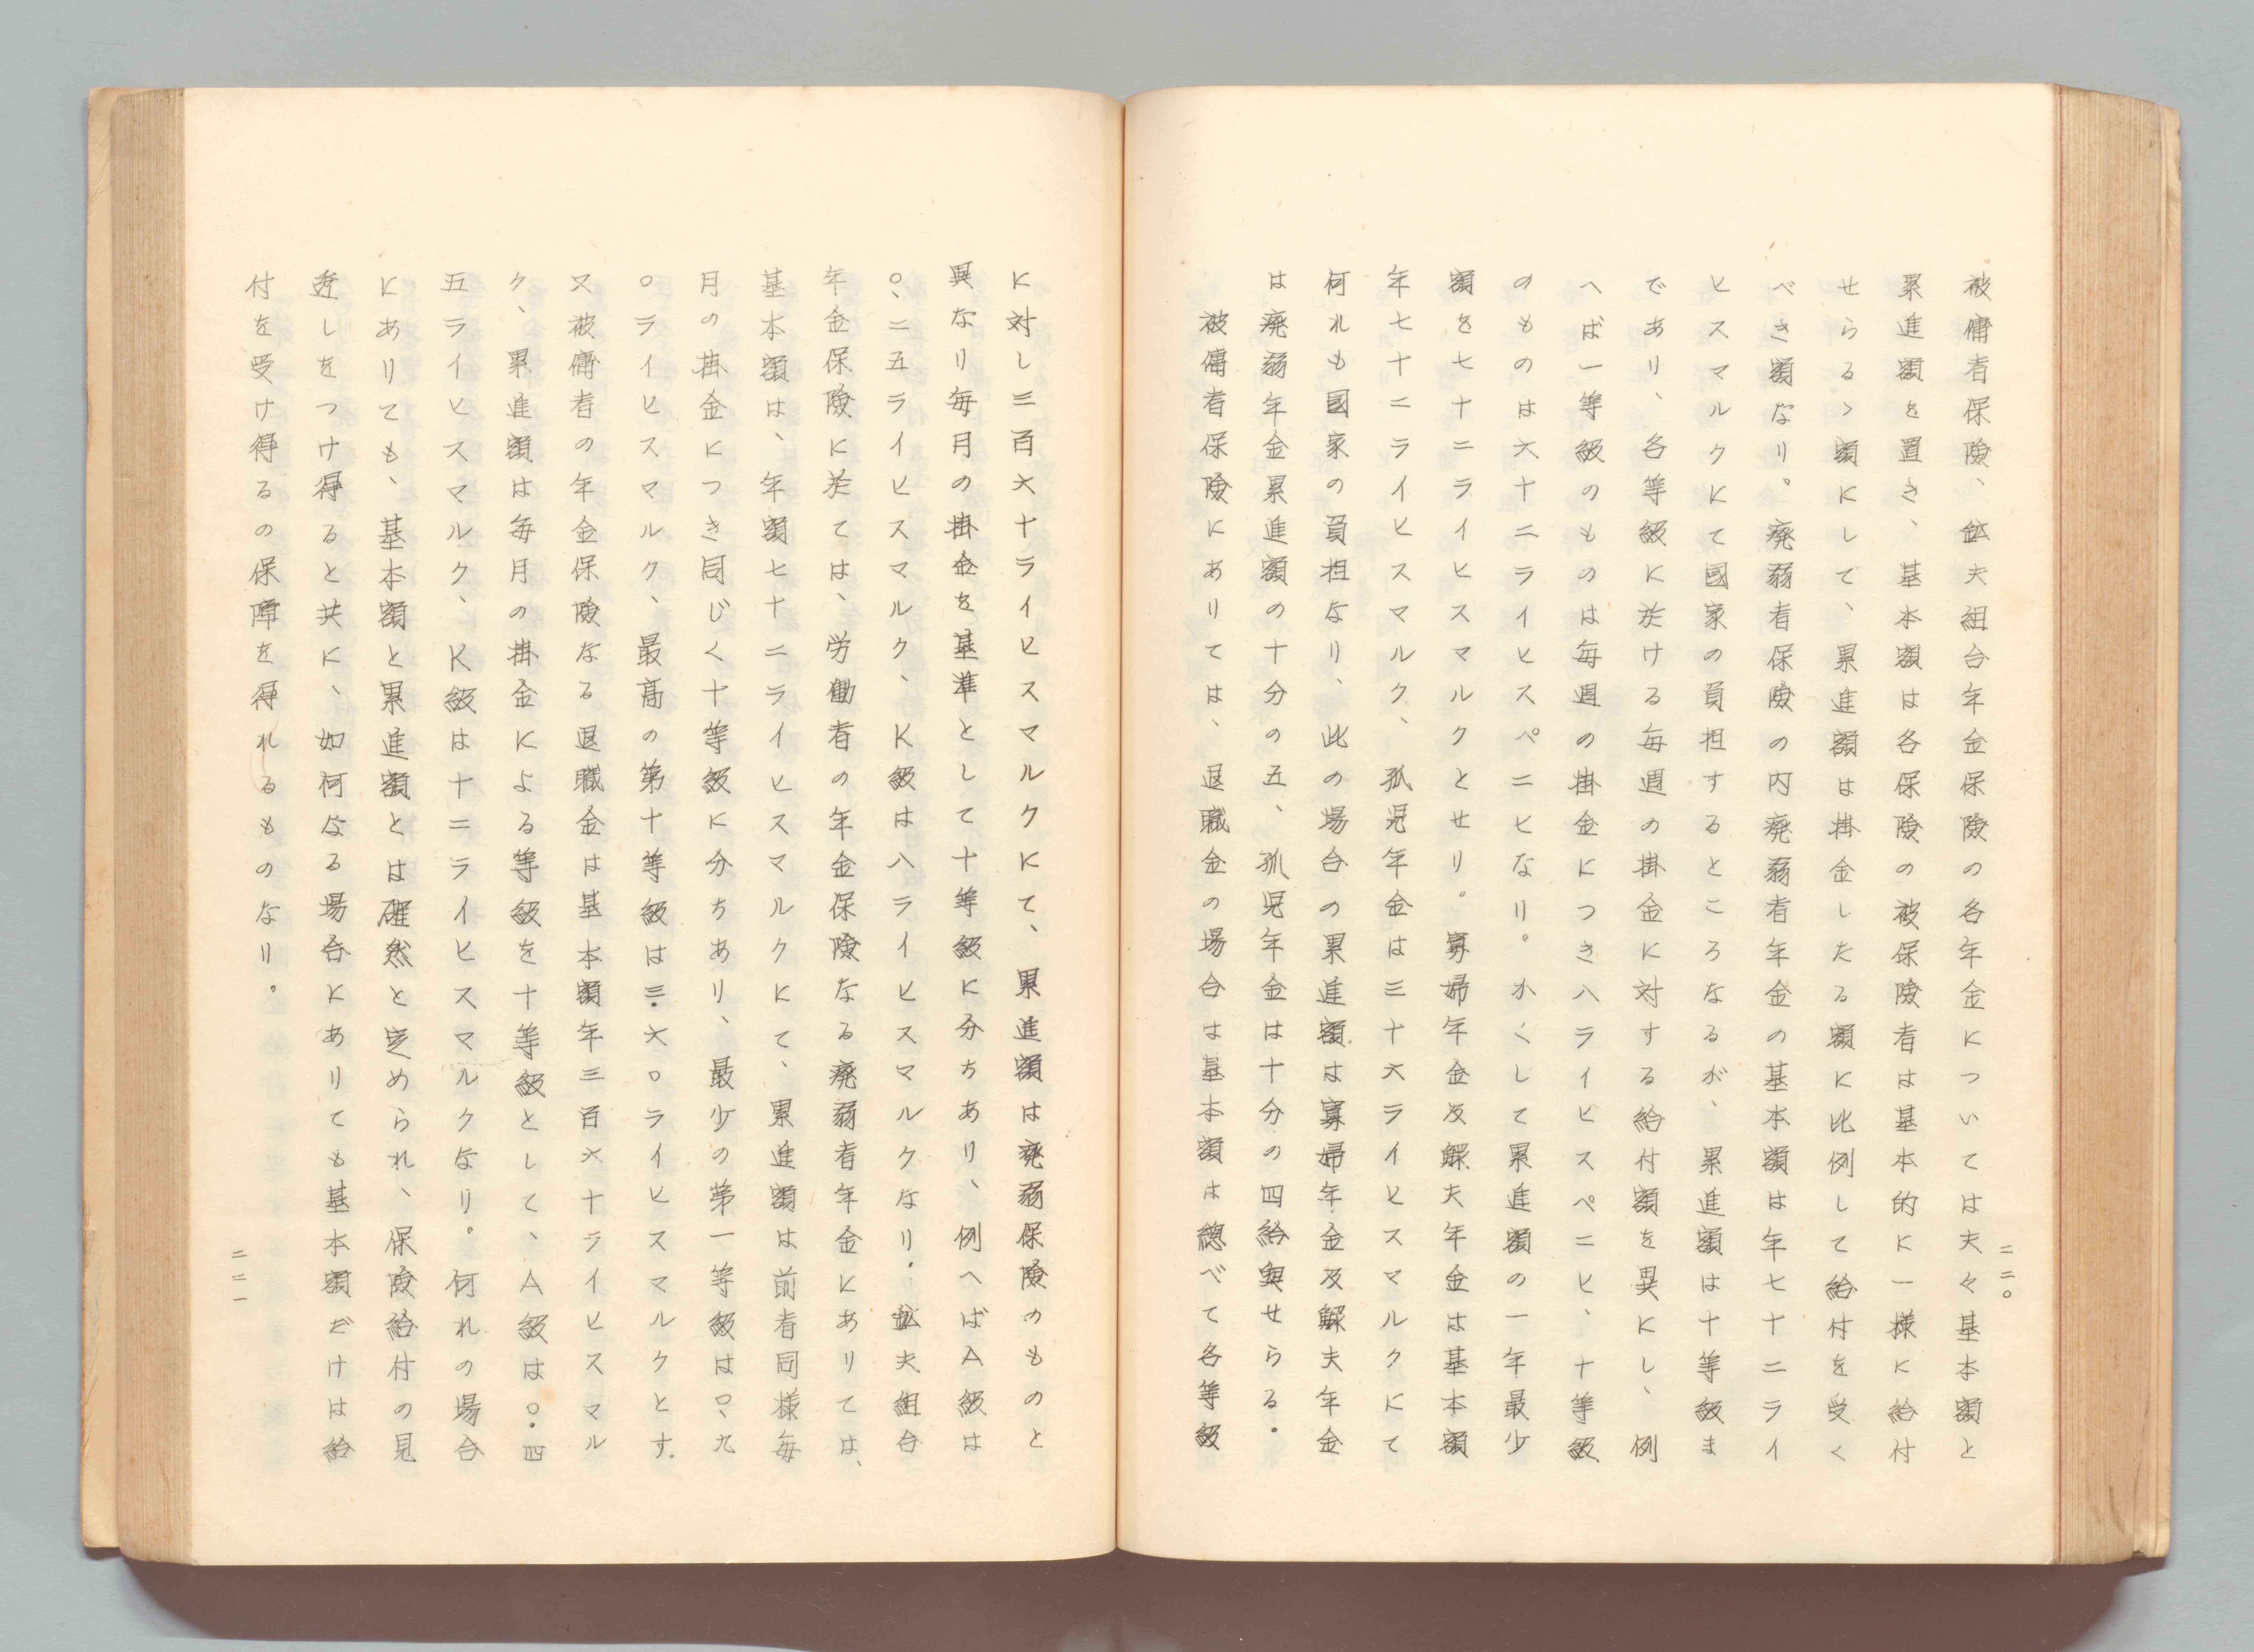 二二〇
被傭者保險、鉱夫組合年金保險の各年金については夫々基本額と
累進額を置き、基本額は各保險の被保險者は基本的に一様に給付
せらるゝ額にして、累進額は掛金したる額に比例して給付を受く
べき額なり。廃弱者保險の内廃弱者年金の基本額は年七十二ライ
ヒスマルクにて國家の負担するところなるが、累進額は十等級ま
であり、各等級に於ける毎週の掛金に対する給付額を異にし、例
へば一等級のものは毎週の掛金につき八ライビスペニヒ、十等級
のものは六十二ライヒスペニヒなり。かくして累進額の一年最少
額を七十二ライヒスマルクとせり。寡婦年金及鰥夫年金は基本額
年七十二ライヒスマルク、孤児年金は三十六ライヒスマルクにて
何れも國家の負担なり、此の場合の累進額は寡婦年金及鰥夫年金
は廃弱年金累進額の十分の五、孤児年金は十分の四給與せらる・
被傭者保險にありては、退職金の場合は基本額は總べて各等級
に対し三百六十ライヒスマルクにて、累進額は廃弱保險のものと
異なり毎月の掛金を基準として十等級に分ちあり、例へばA級は
〇、二五ライヒスマルク、K級は八ライヒスマルクなり・鉱夫組合
年金保險に於ては、労働者の年金保險なる廃弱者年金にありては、
基本額は、年額七十二ライヒスマルクにて、累進額は前者同様毎
月の掛金につき同じく十等級に分ちあり、最少の第一等級は〇、九
〇ライヒスマルク、最高の第十等級は三・六〇ライヒスマルクとす.
又被傭者の年金保險なる退職金は基本額年三百六十ライヒスマル
ク、累進額は毎月の掛金による等級を十等級として、A級は〇・四
五ライヒスマルク、K級は十二ライヒスマルクなり。何れの場合
にありても、基本額と累進額とは確然と定められ、保險給付の見
透しをつけ得ると共に、如何なる場合にありても基本額だけは給
付を受け得るの保障を得れるものなり。
二二一